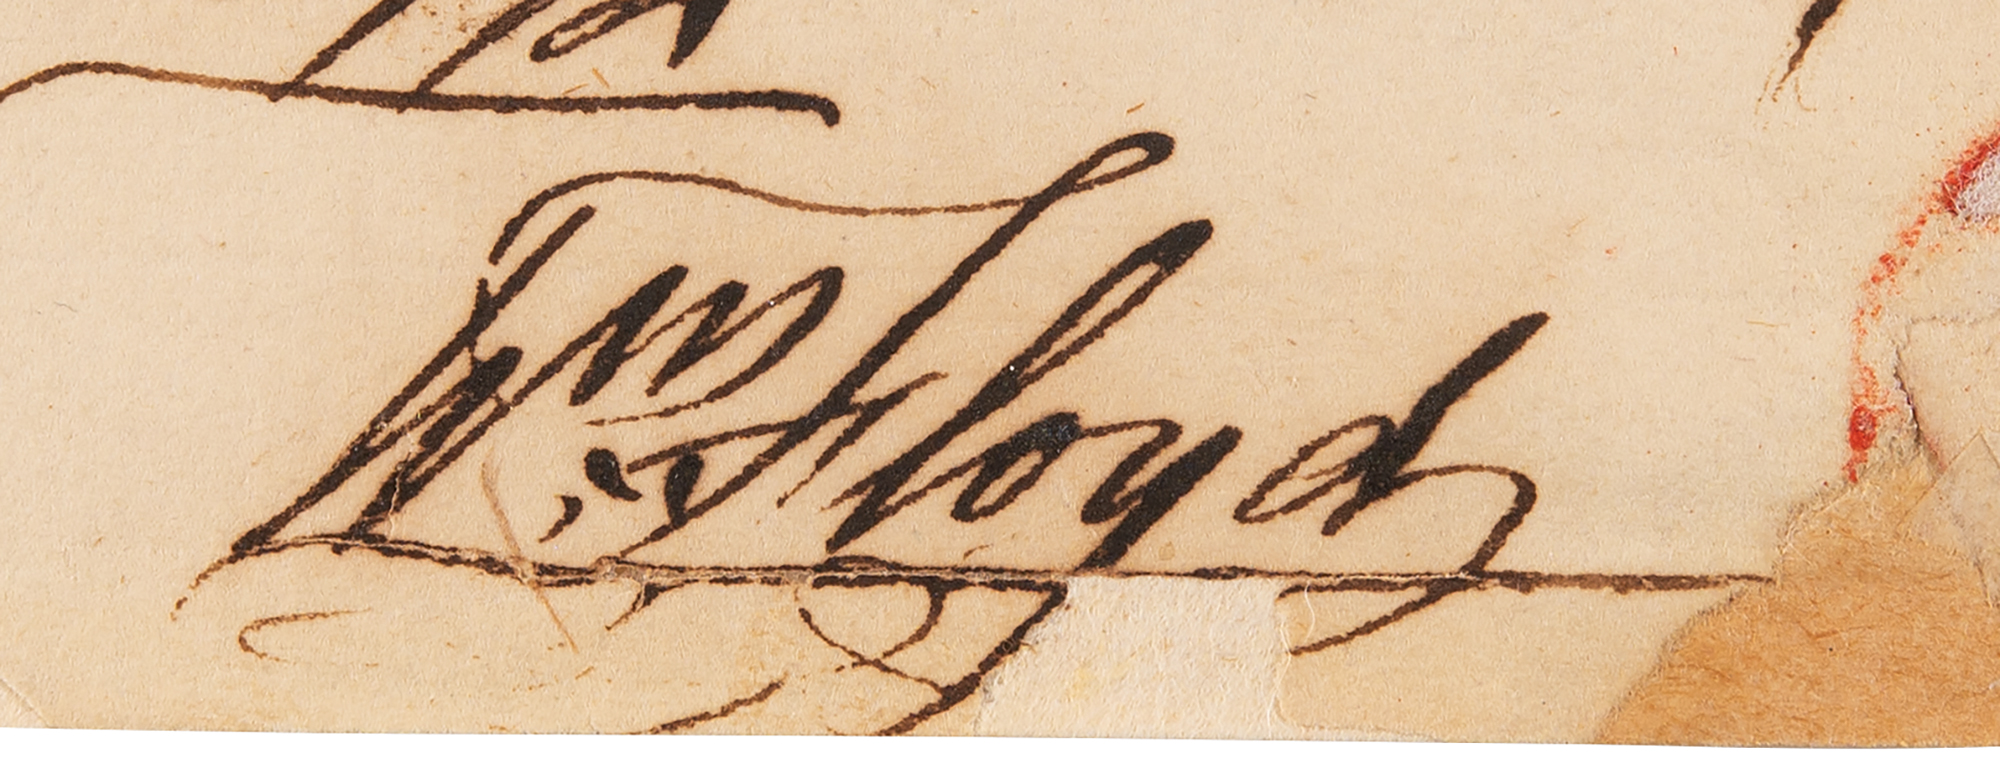 Wm. Floyd